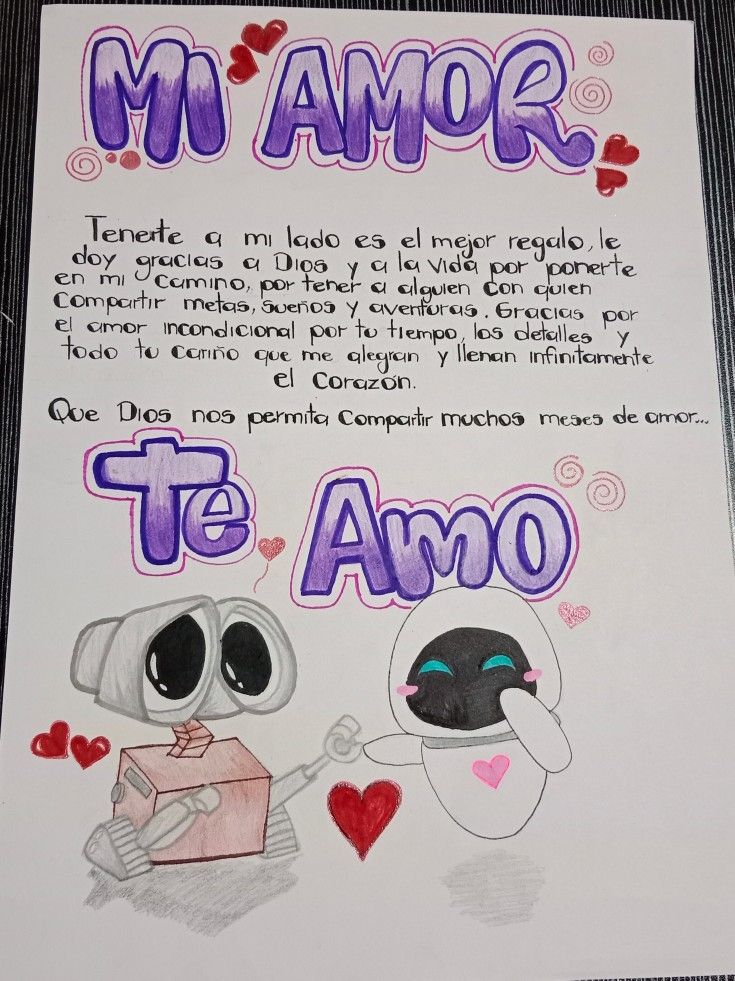 MI AMOR
Tenerte a mi lado es el mejor regalo, le
doy gracias a Dios y a la vida por ponerte
en mi camino, por tener a alguien con quien
compartir metas, sueños y aventuras. Gracias por
el amor incondicional por tu tiempo, los detalles y
todo tu cariño que me alegran y llenan infinitamente
el corazón.
Que Dios nos permita compartir muchos meses de amor...
Te Amo